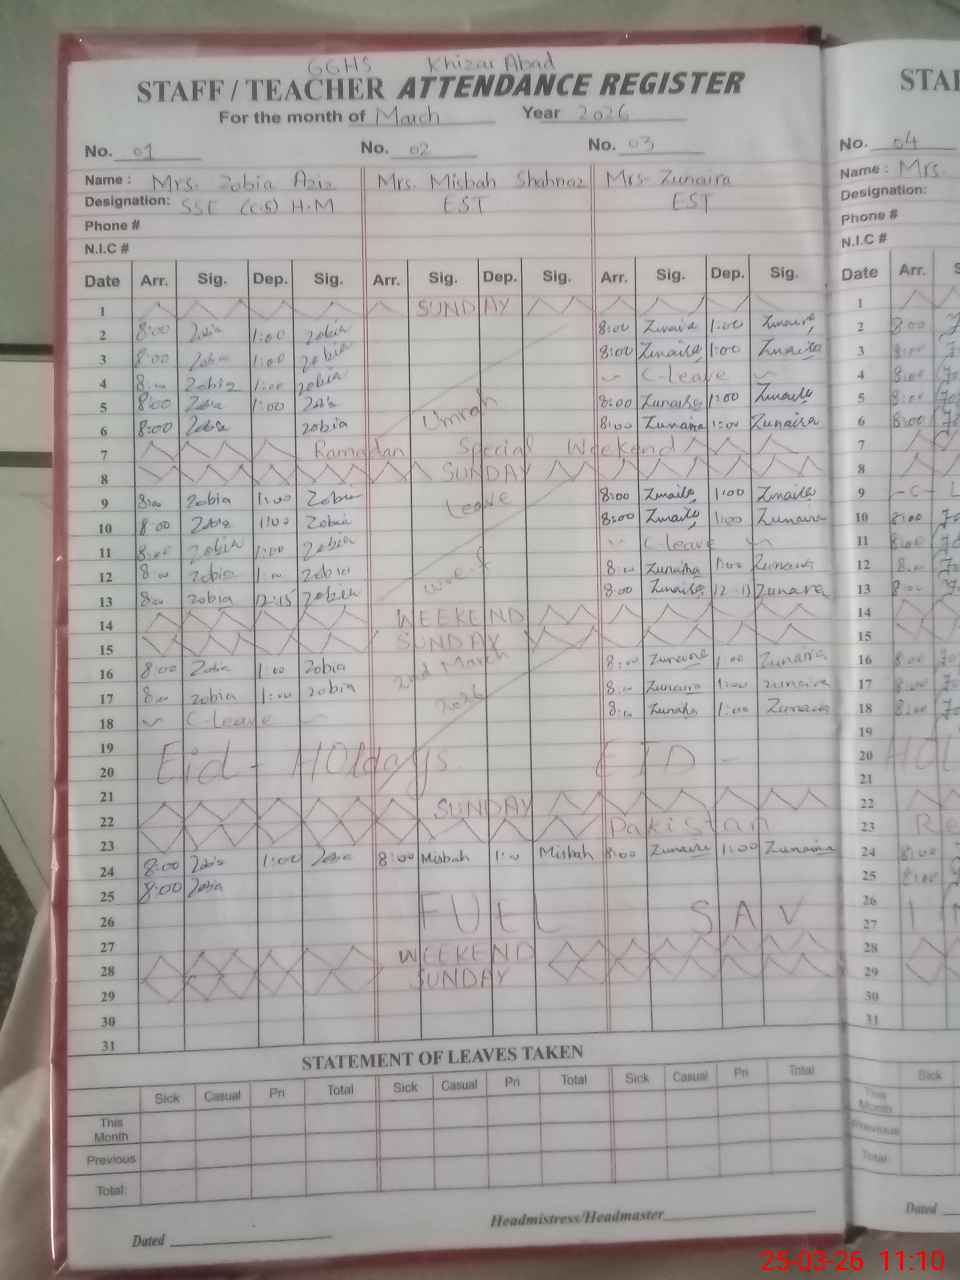 GGHS Khizar Abad
STAFF / TEACHER ATTENDANCE REGISTER STAF
For the month of March Year 2026
No. 01 No. 02 No. 03 No. 04
Name : Mrs. Zobia Aziz Mrs. Misbah Shahnaz Mrs. Zunaira Name : Mrs.
Designation: SSE (C.S) H.M EST EST Designation:
Phone # Phone #
N.I.C # N.I.C #
Date Arr. Sig. Dep. Sig. Arr. Sig. Dep. Sig. Arr. Sig. Dep. Sig. Date Arr. S
1 SUNDAY 1
2 8:00 Zobia 1:00 Zobia 8:00 Zunaira 1:00 Zunaira 2 8:00
3 8:00 Zobia 1:00 Zobia 8:00 Zunaira 1:00 Zunaira 3 8:00
4 8:00 Zobia 1:00 Zobia C-leave 4 8:00
5 8:00 Zobia 1:00 Zobia Umrah 8:00 Zunaira 1:00 Zunaira 5 8:00
6 8:00 Zobia Zobia 8:00 Zunaira 1:00 Zunaira 6 8:00
7 Ramadan Special Weekend 7
8 SUNDAY 8
9 8:00 Zobia 1:00 Zobia Leave 8:00 Zunaira 1:00 Zunaira 9 -C- L
10 8:00 Zobia 1:00 Zobia 8:00 Zunaira 1:00 Zunaira 10 8:00
11 8:00 Zobia 1:00 Zobia C-leave 11 8:00
12 8:00 Zobia 1:00 Zobia w.e.f 8:00 Zunaira 1:00 Zunaira 12 8:00
13 8:00 Zobia 12:15 Zobia 8:00 Zunaira Zunaira 13 8:00
14 WEEKEND 14
15 SUNDAY 15
16 8:00 Zobia 1:00 Zobia 2nd March 8:00 Zunaira 1:00 Zunaira 16 8:00
17 8:00 Zobia 1:00 Zobia 2026 8:00 Zunaira 1:00 Zunaira 17 8:00
18 C-Leave 8:00 Zunaira 1:00 Zunaira 18 8:00
19 19
20 Eid - HOldays EID - 20 HOL
21 21
22 SUNDAY 22
23 Pakistan 23 Re
24 8:00 Zobia 1:00 Zobia 8:00 Misbah 1:00 Misbah 8:00 Zunaira 1:00 Zunaira 24 8:00
25 8:00 Zobia 25 8:00
26 FUEL SAV 26
27 27
28 WEEKEND 28
29 SUNDAY 29
30 30
31 31
STATEMENT OF LEAVES TAKEN
Sick Casual Pri Total Sick Casual Pri Total Sick Casual Pri Total Sick
This Month This Month
Previous Previous
Total: Total:
Dated Headmistress/Headmaster Dated
25-03-26 11:10